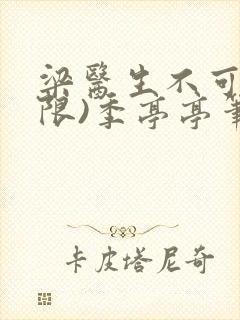 梁醫生不可
限)季亭亭筆
卡皮塔尼奇